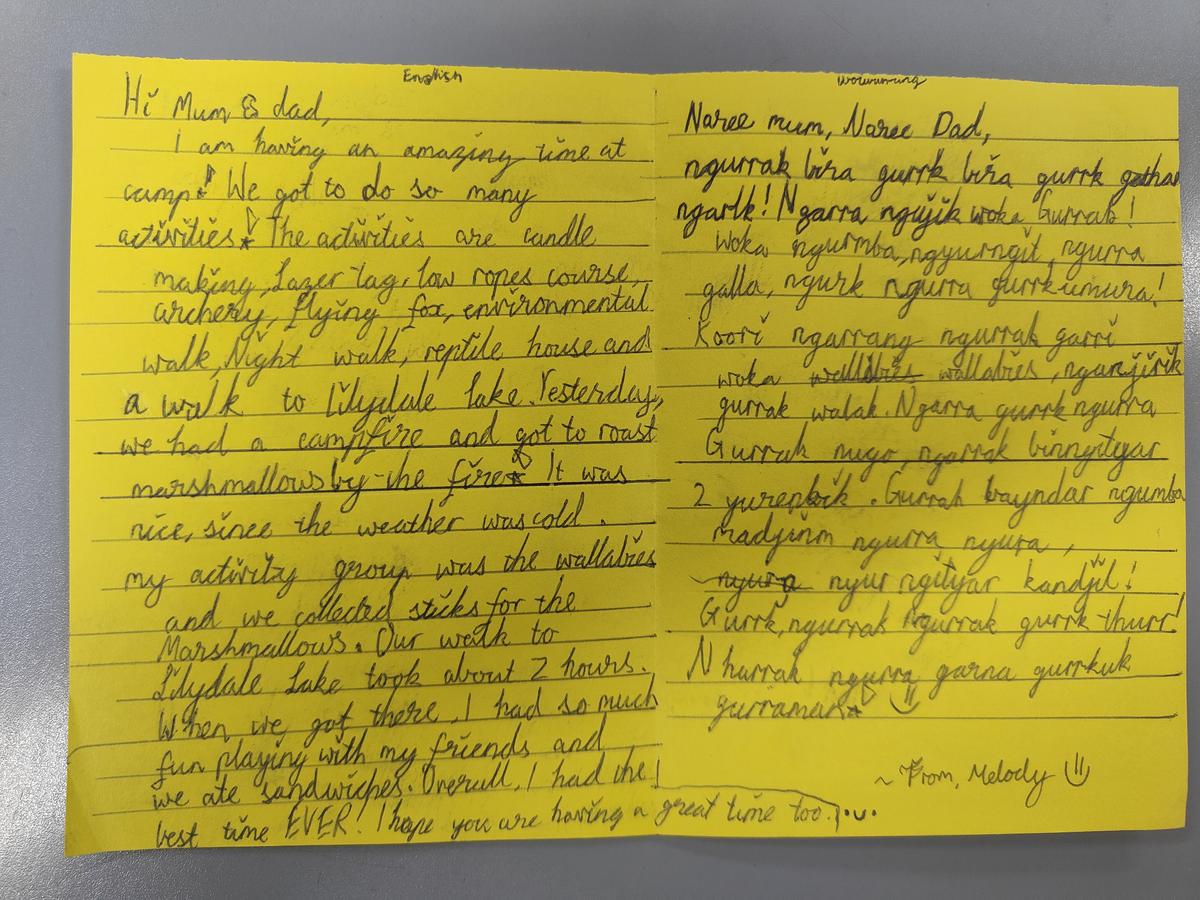 English
Hi Mum & dad,
I am having an amazing time at
camp! We got to do so many
activities! The activities are candle
making, Lazer tag, low ropes course,
archery, flying fox, environmental
walk, Night walk, reptile house and
a walk to Lilydale lake. Yesterday,
we had a campfire and got to roast
marshmallows by the fire! It was
nice, since the weather was cold.
my activity group was the wallabies
and we collected sticks for the
Marshmallows. Our walk to
Lilydale Lake took about 2 hours.
When we got there, I had so much
fun playing with my friends and
we ate sandwiches. Overall, I had the
best time EVER! I hope you are having a great time too.
Naree mum, Naree Dad,
ngurrak bira gurrk bira gurrk gathan
ngarlk! Ngarra ngujik woka Gurrab!
Woka ngurmba, ngyurngit, ngurra
galla, ngurk ngurra gurrkumura!
Koori ngarrang ngurrak garri
woka wallabies, nganjirik
gurrak walak. Ngarra gurrk ngurra
Gurrak nugo, ngarrak binnyityar
2 . Gurrah bayndar ngumba
madjinm ngurra nyura,
nyura nyur ngityar kandjil!
Gurrk, ngurrak Ngurrak gurrk-thurr!
Nharrak ngurra garna gurrkuk
gurraman
~ From, Melody